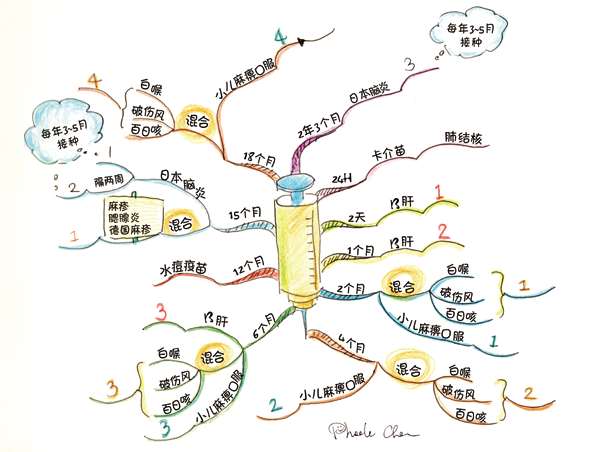 2年3个月
日本脑炎
3
每年3~5月
接种
24H
卡介苗
肺结核
2天
B肝
1
1个月
B肝
2
2个月
混合
白喉
破伤风
百日咳
1
小儿麻痹口服
1
4个月
混合
白喉
破伤风
百日咳
2
小儿麻痹口服
2
6个月
B肝
3
混合
白喉
破伤风
百日咳
3
小儿麻痹口服
3
12个月
水痘疫苗
15个月
日本脑炎
1
隔两周
2
每年3~5月
接种
混合
麻疹
腮腺炎
德国麻疹
1
18个月
混合
白喉
破伤风
百日咳
4
小儿麻痹口服
4
Chen